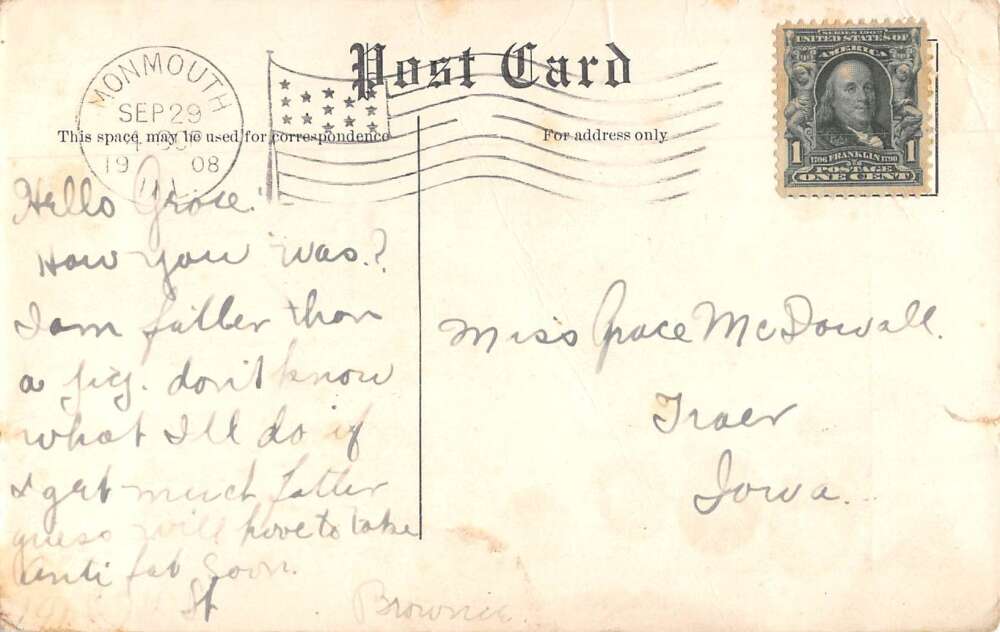 Post Card
MONMOUTH
SEP 29
1908
ILL.
This space may be used for correspondence
For address only
SERIES 1902
UNITED STATES OF
AMERICA
1
1706 FRANKLIN 1790
1
POSTAGE
ONE CENT
Hello Grace!
How you was?
I am fatter than
a pig. don't know
what I'll do if
I get much fatter
guess will have to take
Anti fat soon.
Brownie
Miss Grace McDowall.
Traer
Iowa.